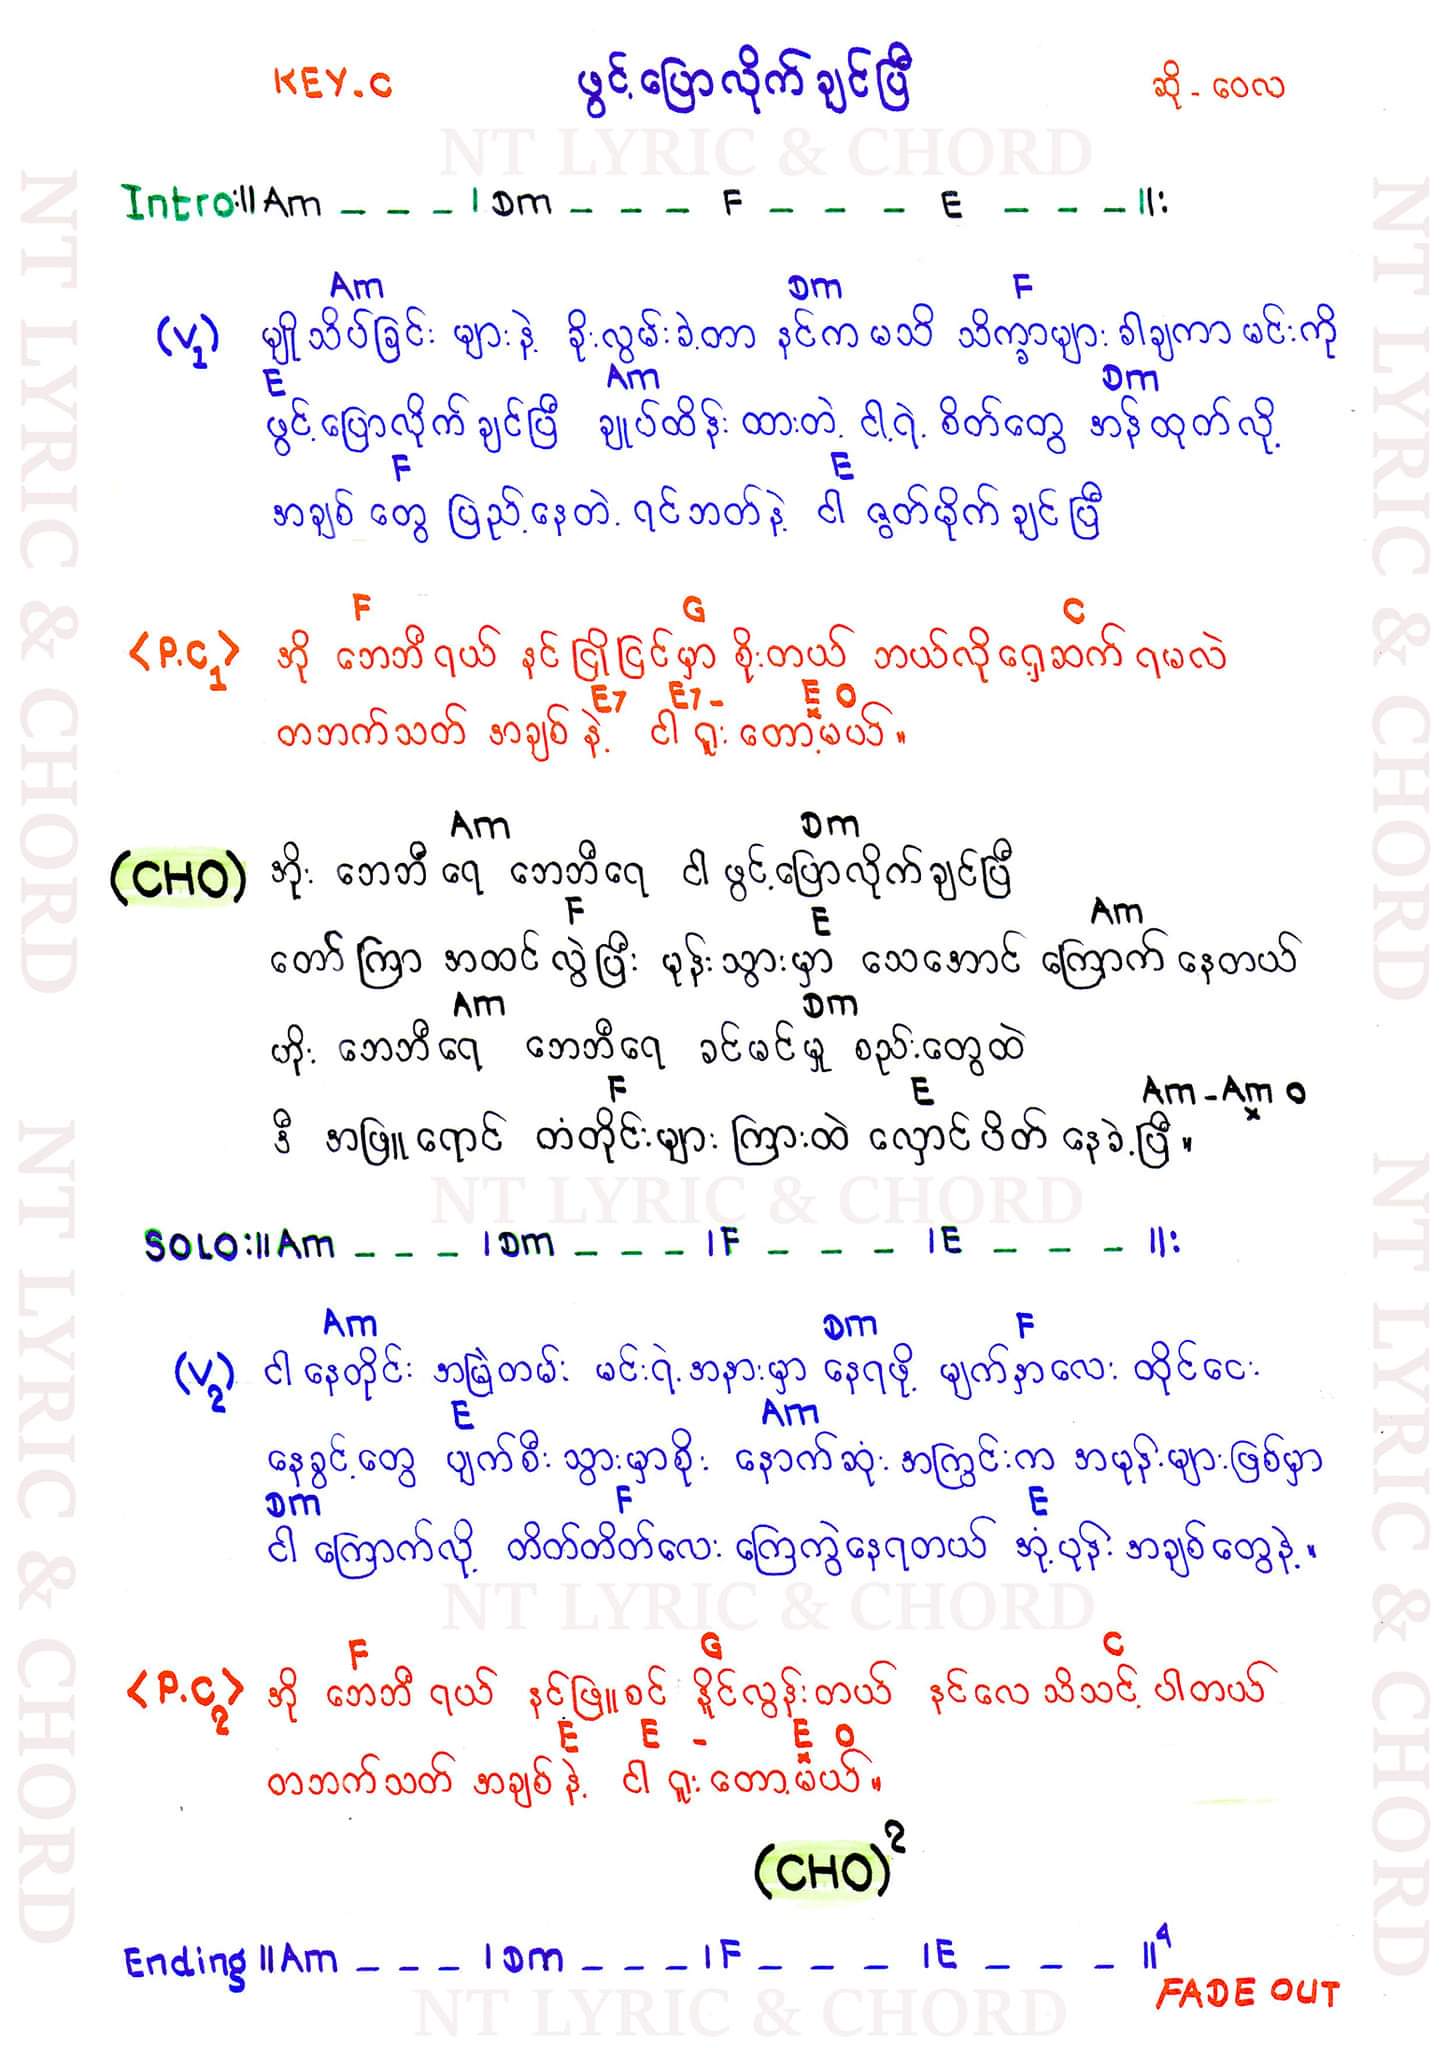 KEY.C ဖွင့်ပြောလိုက်ချင်ပြီ ဆို - ဝေလ
NT LYRIC & CHORD
Intro:|| Am _ _ _ | Dm _ _ _ F _ _ _ E _ _ _ ||:
Am Dm F
(V1) မျိုသိပ်ခြင်း များနဲ့ ခိုးလွမ်းခဲ့တာ နင်က မသိ သိက္ခာများ ခါချကာ မင်းကို
E Am Dm
ဖွင့်ပြောလိုက်ချင်ပြီ ချုပ်ထိန်း ထားတဲ့ ငါ့ရဲ့ စိတ်တွေ အန်ထုတ်လို့
F E
အချစ်တွေ ပြည့်နေတဲ့ ရင်ဘတ်နဲ့ ငါ ဇွတ်မိုက်ချင်ပြီ
F G C
<P.C1> အို ဘေဘီရယ် နင် ငြိုငြင်မှာ စိုးတယ် ဘယ်လိုရှေ့ဆက် ရမလဲ
E7 E7 - E 0
တဘက်သတ် အချစ်နဲ့ ငါ ရူးတော့မယ်။
Am Dm
(CHO) အိုး ဘေဘီရေ ဘေဘီရေ ငါ ဖွင့်ပြောလိုက်ချင်ပြီ
F E Am
တော်ကြာ အထင်လွဲပြီး မုန်းသွားမှာ သေအောင် ကြောက်နေတယ်
Am Dm
ဟိုး ဘေဘီရေ ဘေဘီရေ ခင်မင်မှု စည်းတွေထဲ
F E Am - Am 0
ဒီ အဖြူရောင် တံတိုင်းများ ကြားထဲ လှောင်ပိတ်နေခဲ့ပြီ။
NT LYRIC & CHORD
SOLO:|| Am _ _ _ | Dm _ _ _ | F _ _ _ | E _ _ _ ||:
Am Dm F
(V2) ငါနေတိုင်း အမြဲတမ်း မင်းရဲ့အနားမှာ နေရဖို့ မျက်နှာလေး ထိုင်ငေး
E Am
နေခွင့်တွေ ပျက်စီးသွားမှာစိုး နောက်ဆုံးအကြွင်းက အမုန်းများဖြစ်မှာ
Dm F E
ငါ ကြောက်လို့ တိတ်တိတ်လေး ကြေကွဲနေရတယ် အုံ့ပုန်း အချစ်တွေနဲ့။
NT LYRIC & CHORD
F G C
<P.C2> အို ဘေဘီရယ် နင်ဖြူစင် နိူင်လွန်းတယ် နင်လေ သိသင့်ပါတယ်
E E - E 0
တဘက်သတ် အချစ်နဲ့ ငါ ရူးတော့မယ်။
(CHO)2
Ending || Am _ _ _ | Dm _ _ _ | F _ _ _ | E _ _ _ ||4
FADE OUT
NT LYRIC & CHORD
NT LYRIC & CHORD
NT LYRIC & CHORD
NT LYRIC & CHORD
NT LYRIC & CHORD